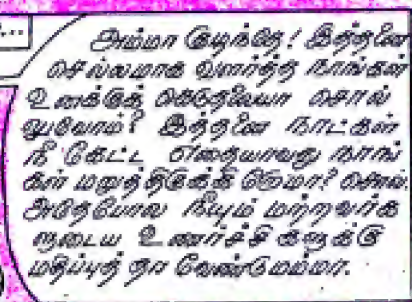 அம்மா குழந்தே! இத்தனை
செல்லமாக வளர்த்த நாங்கள்
உனக்குக் கெடுதலையா சொல்
லுவோம்? இத்தனை நாட்கள்
நீ கேட்ட எதையாவது நாங்
கள் மறுத்திருக்கிறோமா? சொல்.
அதேபோல நீயும் மற்றவர்க
ளுடைய உணர்ச்சிகளுக்கு
மதிப்புத் தர வேண்டுமம்மா.